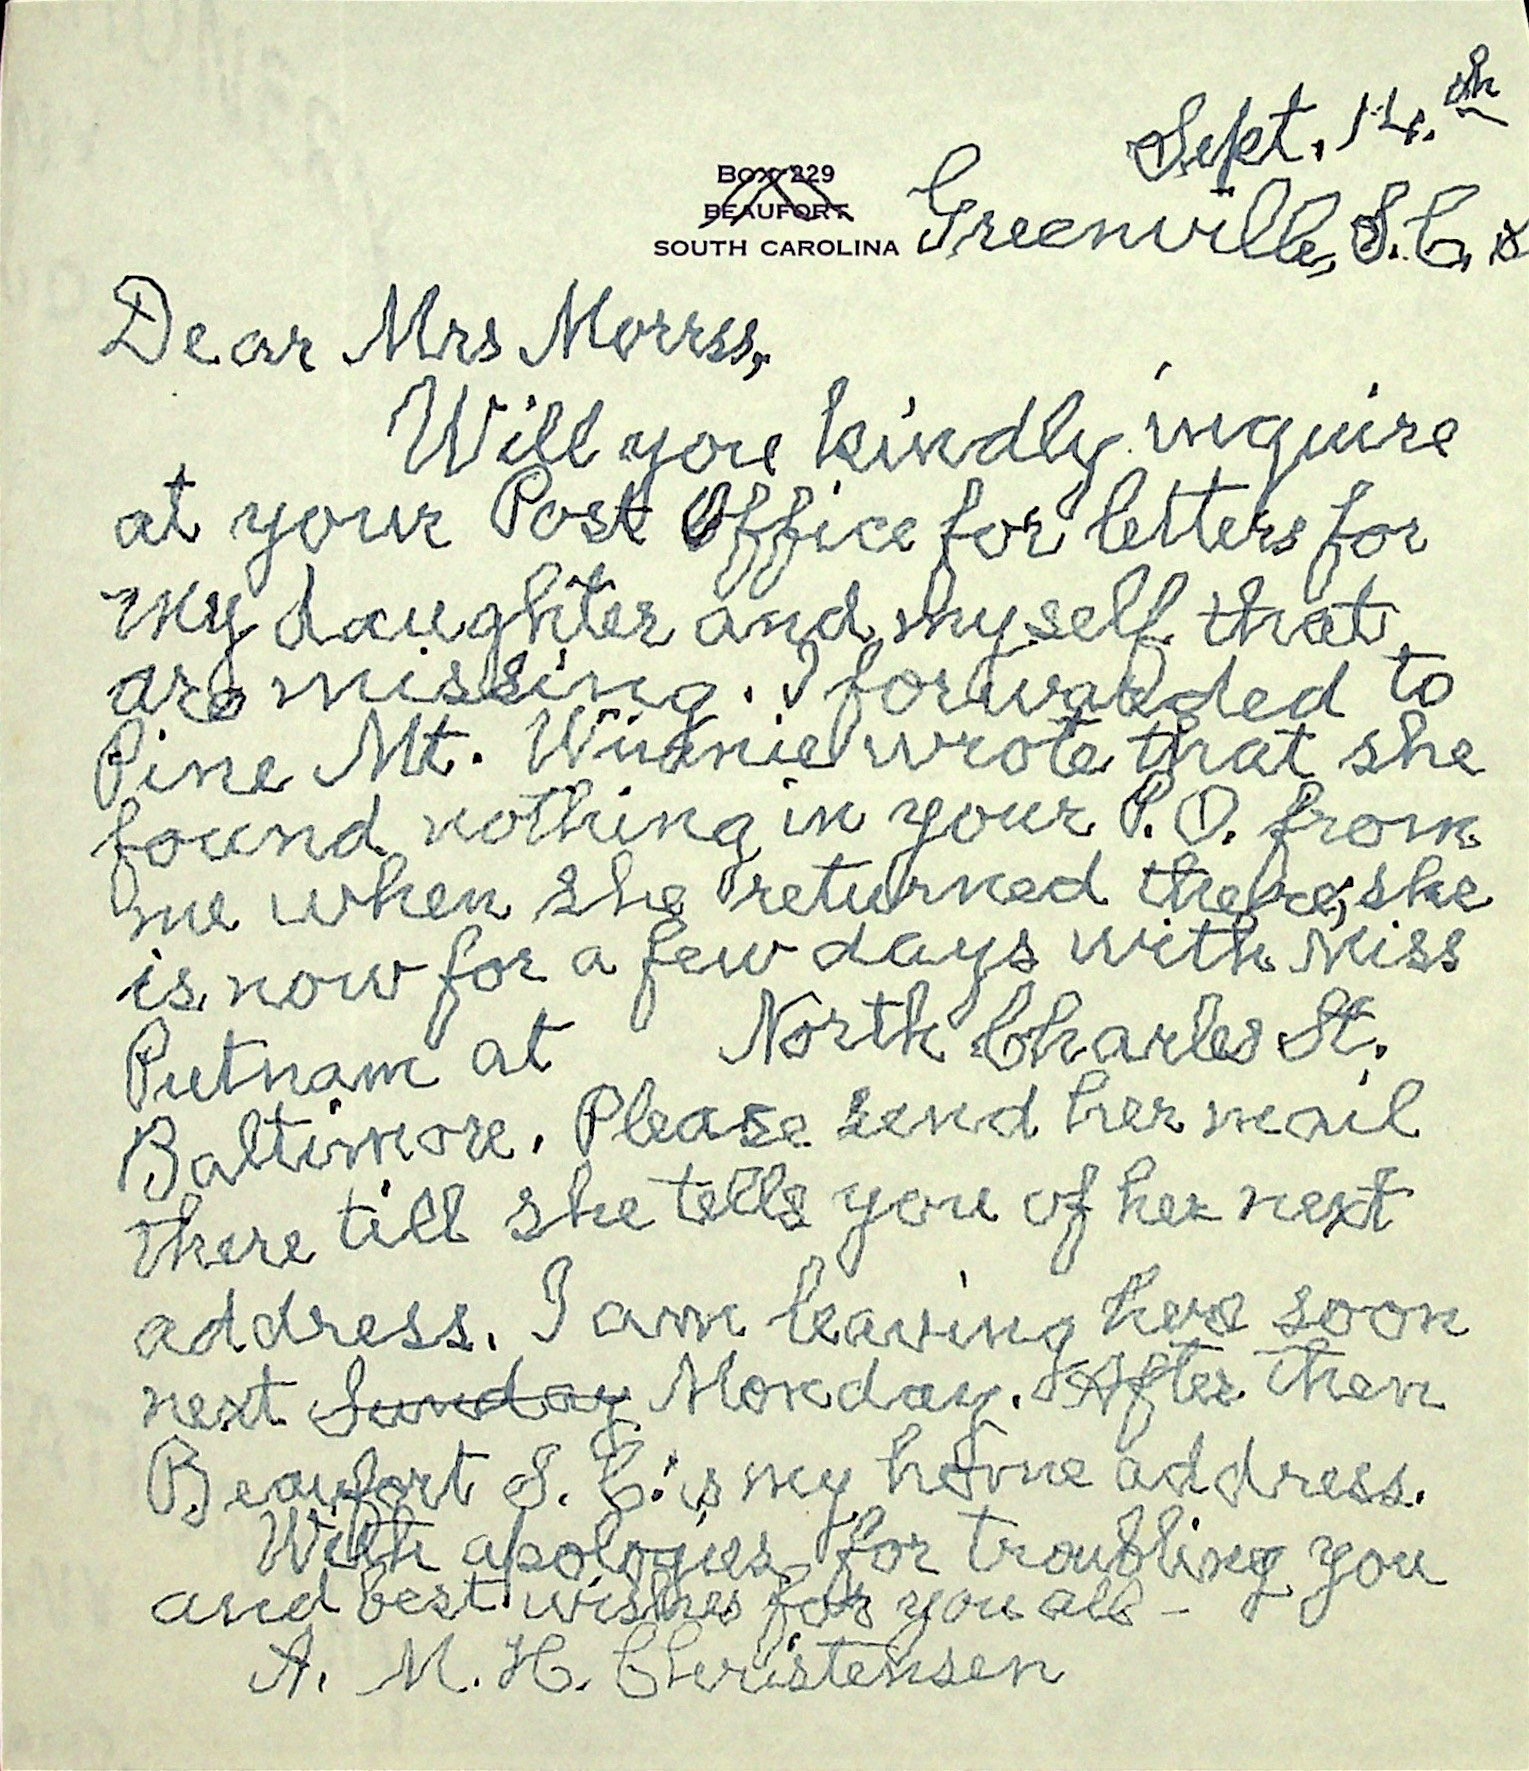 Sept. 14.th
Box 229
BEAUFORT
SOUTH CAROLINA
Greenville, S.C.
Dear Mrs Morrss,
Will you kindly inquire
at your Post Office for letters for
my daughter and myself that
are missing. I forwarded to
Pine Mt. Winnie wrote that she
found nothing in your P.O. from
me when she returned there, she
is now for a few days with Miss
Putnam at North Charles St.
Baltimore. Please send her mail
there till she tells you of her next
address. I am leaving here soon
next Sunday Monday. After then
Beaufort S. C. is my home address.
With apologies for troubling you
and best wishes for you all -
A. M. H. Christensen